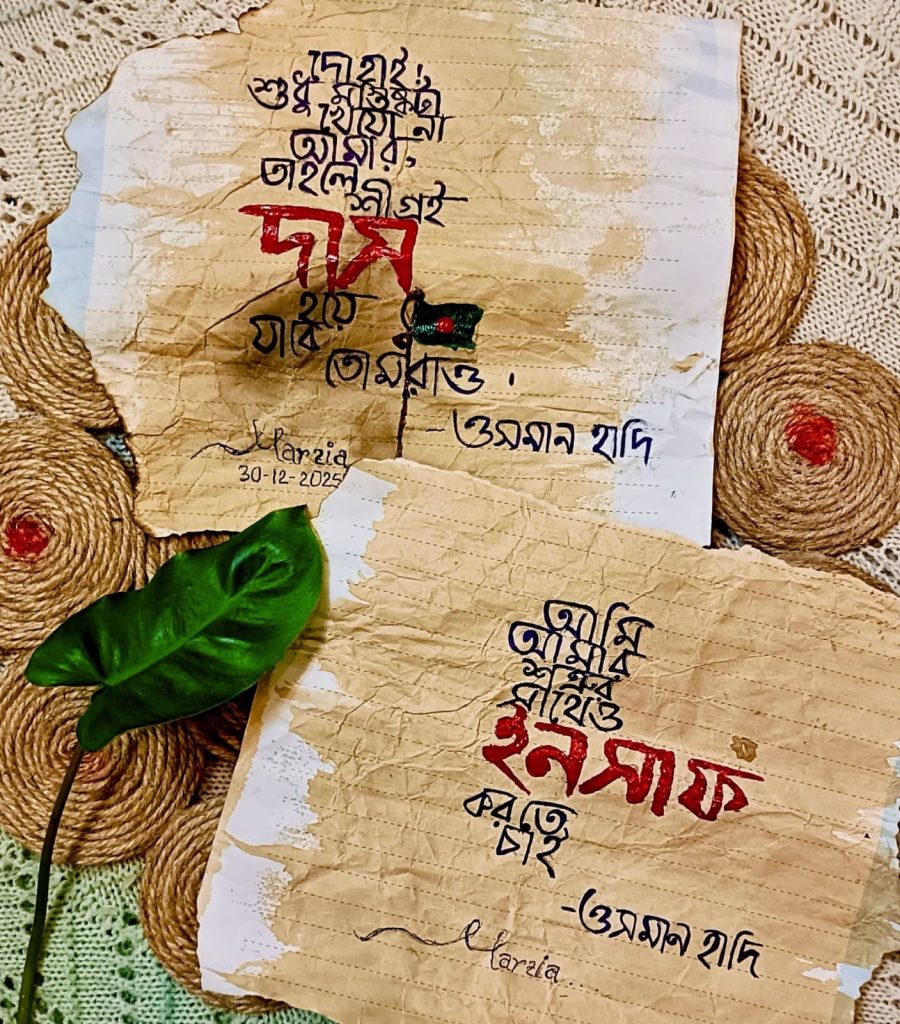 দোহাই!,
শুধু মস্তিষ্কটা
খেয়ো না
আমার,
তাহলে
শীগ্রই
দাস
হয়ে
যাবে
তোমরাও।
- ওসমান হাদি
Marzia
30-12-2025
আমি
আমার
শত্রুর
সাথেও
ইনসাফ
করতে
চাই
- ওসমান হাদি
Marzia